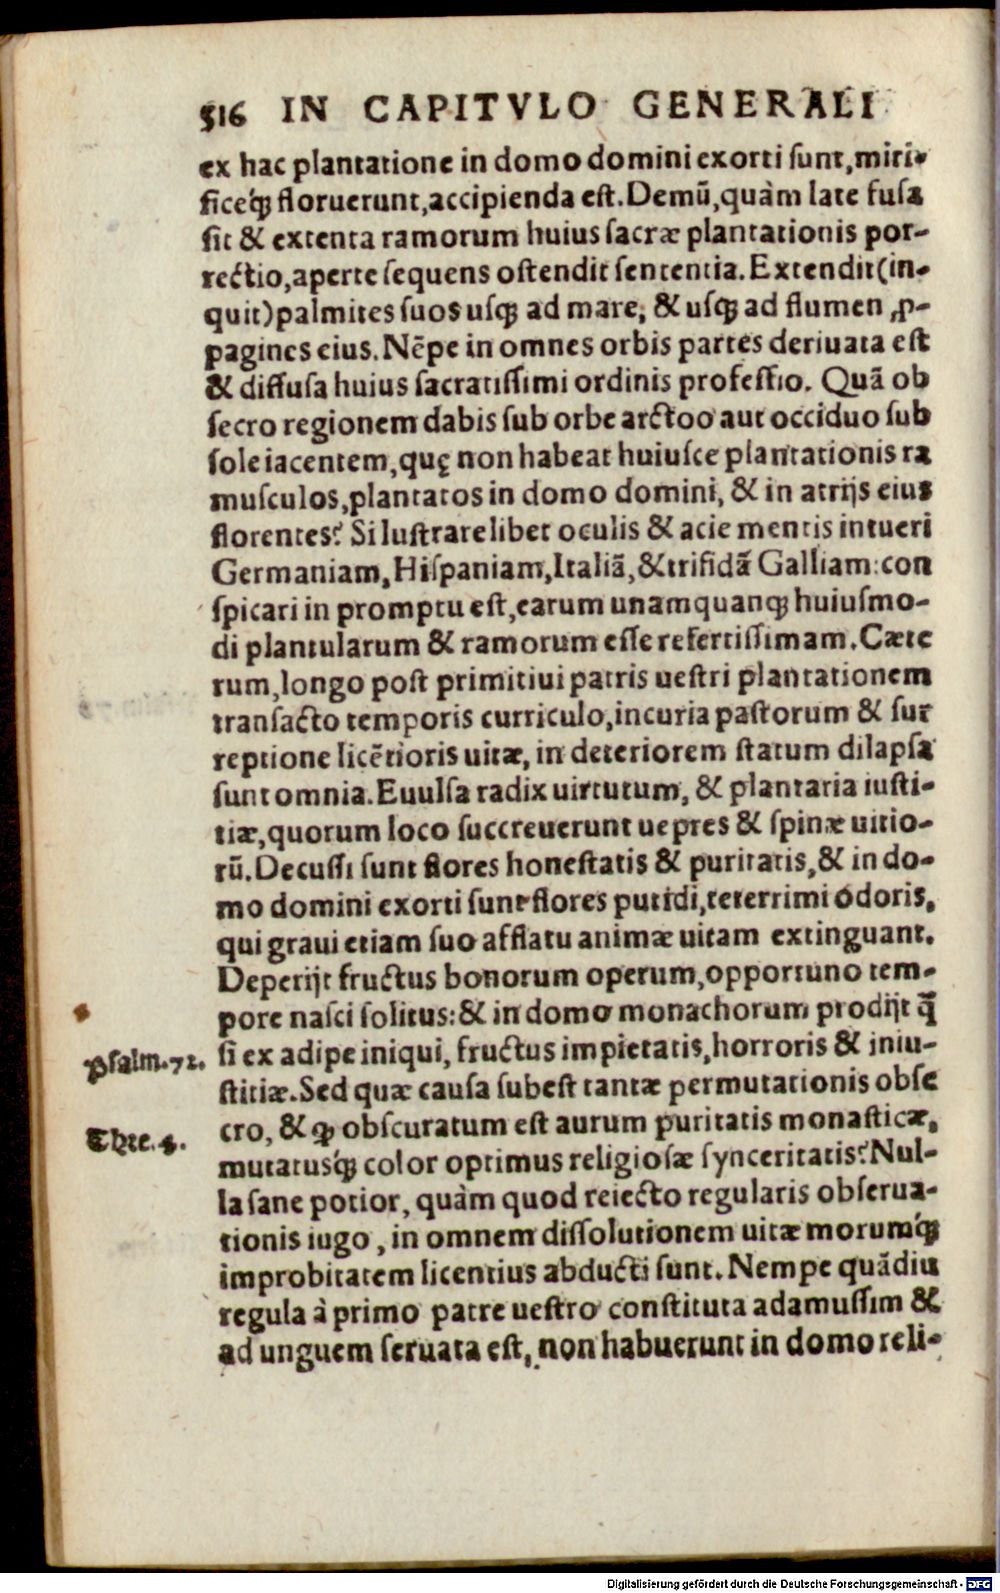 516 IN CAPITVLO GENERALI
ex hac plantatione in domo domini exorti sunt, miri-
ficeq́ꝫ floruerunt, accipienda est. Demū, quàm late fusa
sit & extenta ramorum huius sacræ plantationis por-
rectio, aperte sequens ostendit sententia. Extendit (in-
quit) palmites suos usqꝫ ad mare, & usqꝫ ad flumen ꝓ-
pagines eius. Nēpe in omnes orbis partes deriuata est
& diffusa huius sacratissimi ordinis professio. Quā ob
secro regionem dabis sub orbe arctoo aut occiduo sub
sole iacentem, quę non habeat huiusce plantationis ra
musculos, plantatos in domo domini, & in atrijs eius
florentes? Si lustrare libet oculis & acie mentis intueri
Germaniam, Hispaniam, Italiā, & trifidā Galliam: con
spicari in promptu est, earum unamquanqꝫ huiusmo-
di plantularum & ramorum esse refertissimam. Cæte
rum, longo post primitiui patris uestri plantationem
transacto temporis curriculo, incuria pastorum & sur
reptione licētioris uitæ, in deteriorem statum dilapsa
sunt omnia. Euulsa radix uirtutum, & plantaria iusti-
tiæ, quorum loco succreuerunt uepres & spinæ uitio-
rū. Decussi sunt flores honestatis & puritatis, & in do-
mo domini exorti sunt flores putidi, teterrimi odoris,
qui graui etiam suo afflatu animæ uitam extinguant.
Deperijt fructus bonorum operum, opportuno tem-
pore nasci solitus: & in domo monachorum prodijt q̄
Psalm.72. si ex adipe iniqui, fructus impietatis, horroris & iniu-
stitiæ. Sed quæ causa subest tantæ permutationis obse
Thre.4. cro, & ꝙ obscuratum est aurum puritatis monasticæ,
mutatusq́ꝫ color optimus religiosæ synceritatis? Nul-
la sane potior, quàm quod reiecto regularis obserua-
tionis iugo, in omnem dissolutionem uitæ morumq́ꝫ
improbitatem licentius abducti sunt. Nempe quādiu
regula à primo patre uestro constituta adamussim &
ad unguem seruata est, non habuerunt in domo reli-
Digitalisierung gefördert durch die Deutsche Forschungsgemeinschaft - DFG